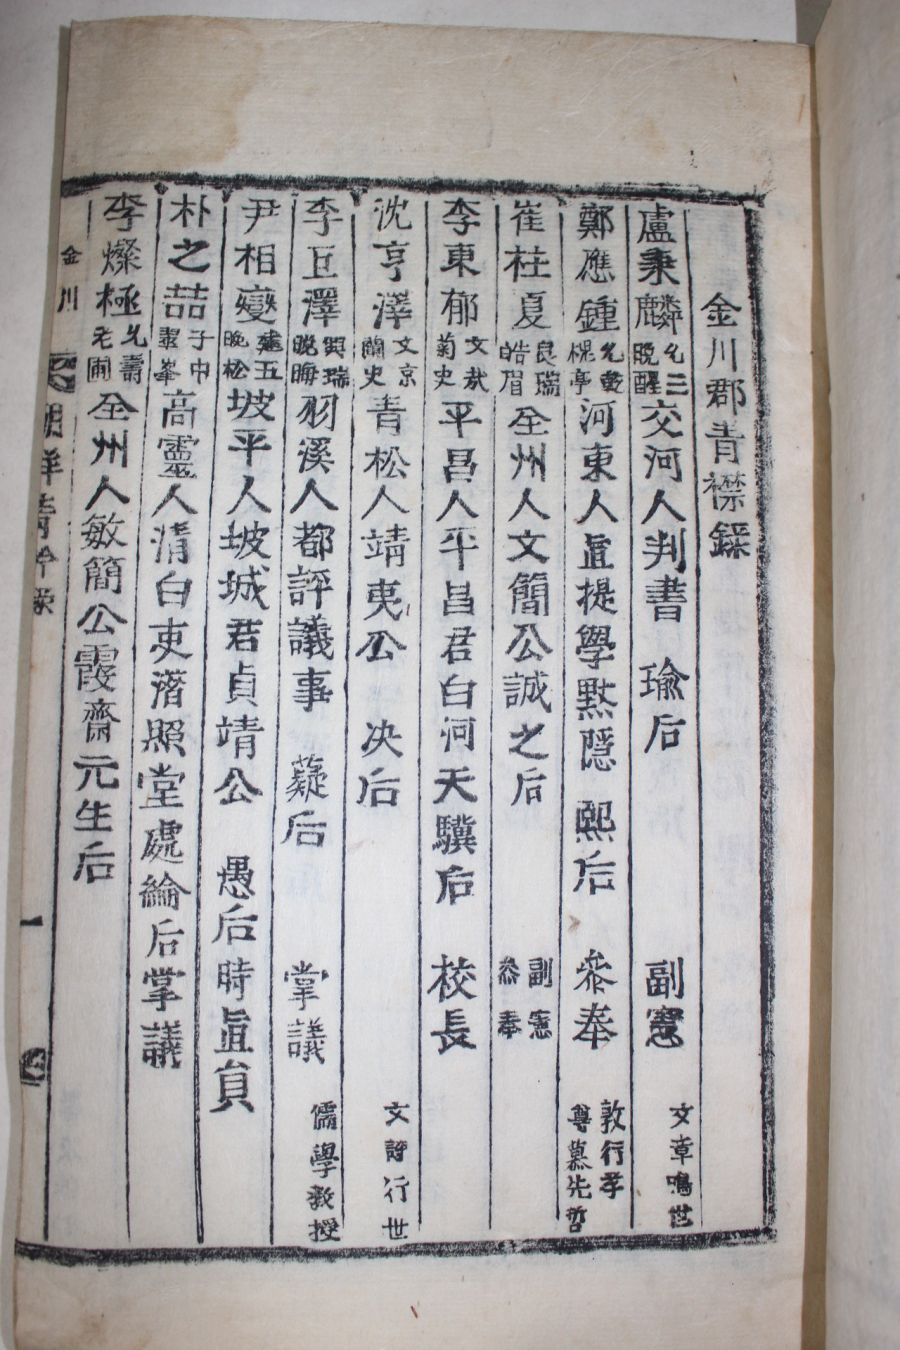 金川郡青襟錄
盧秉麟允三晩醒交河人判書 瑜后 副憲 文章鳴世
鄭應鍾允敬棍亭河東人直提學黙隱 熙后 叅奉 敦行孝尊慕先哲
崔柱夏良瑞皓眉全州人文簡公誠之后 副憲叅奉
李東郁文哉菊史平昌人平昌君白河天驥后 校長
沈亨澤文京蘭史青松人靖夷公 决后 文詩行世
李亘澤興瑞晩晦羽溪人都評議事 薿后 掌議 儒學教授
尹相變建五晩松坡平人坡城君貞靖公 愚后時直員
朴之喆子中翠峯高靈人清白吏落照堂處綸后掌議
李燦極允壽老圃全州人敏簡公霞齋元生后
金川
朝鮮青衿錄
一